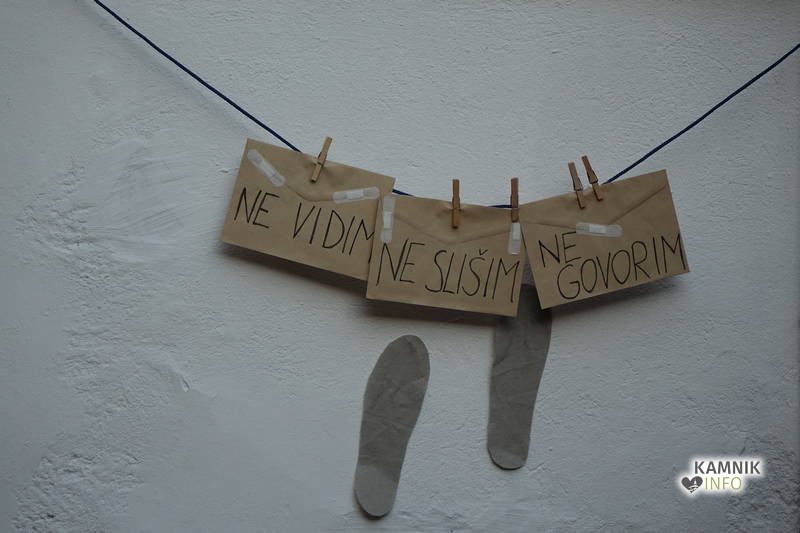 NE VIDIM
NE SLIŠIM
NE
GOVORIM
KAMNIK
INFO